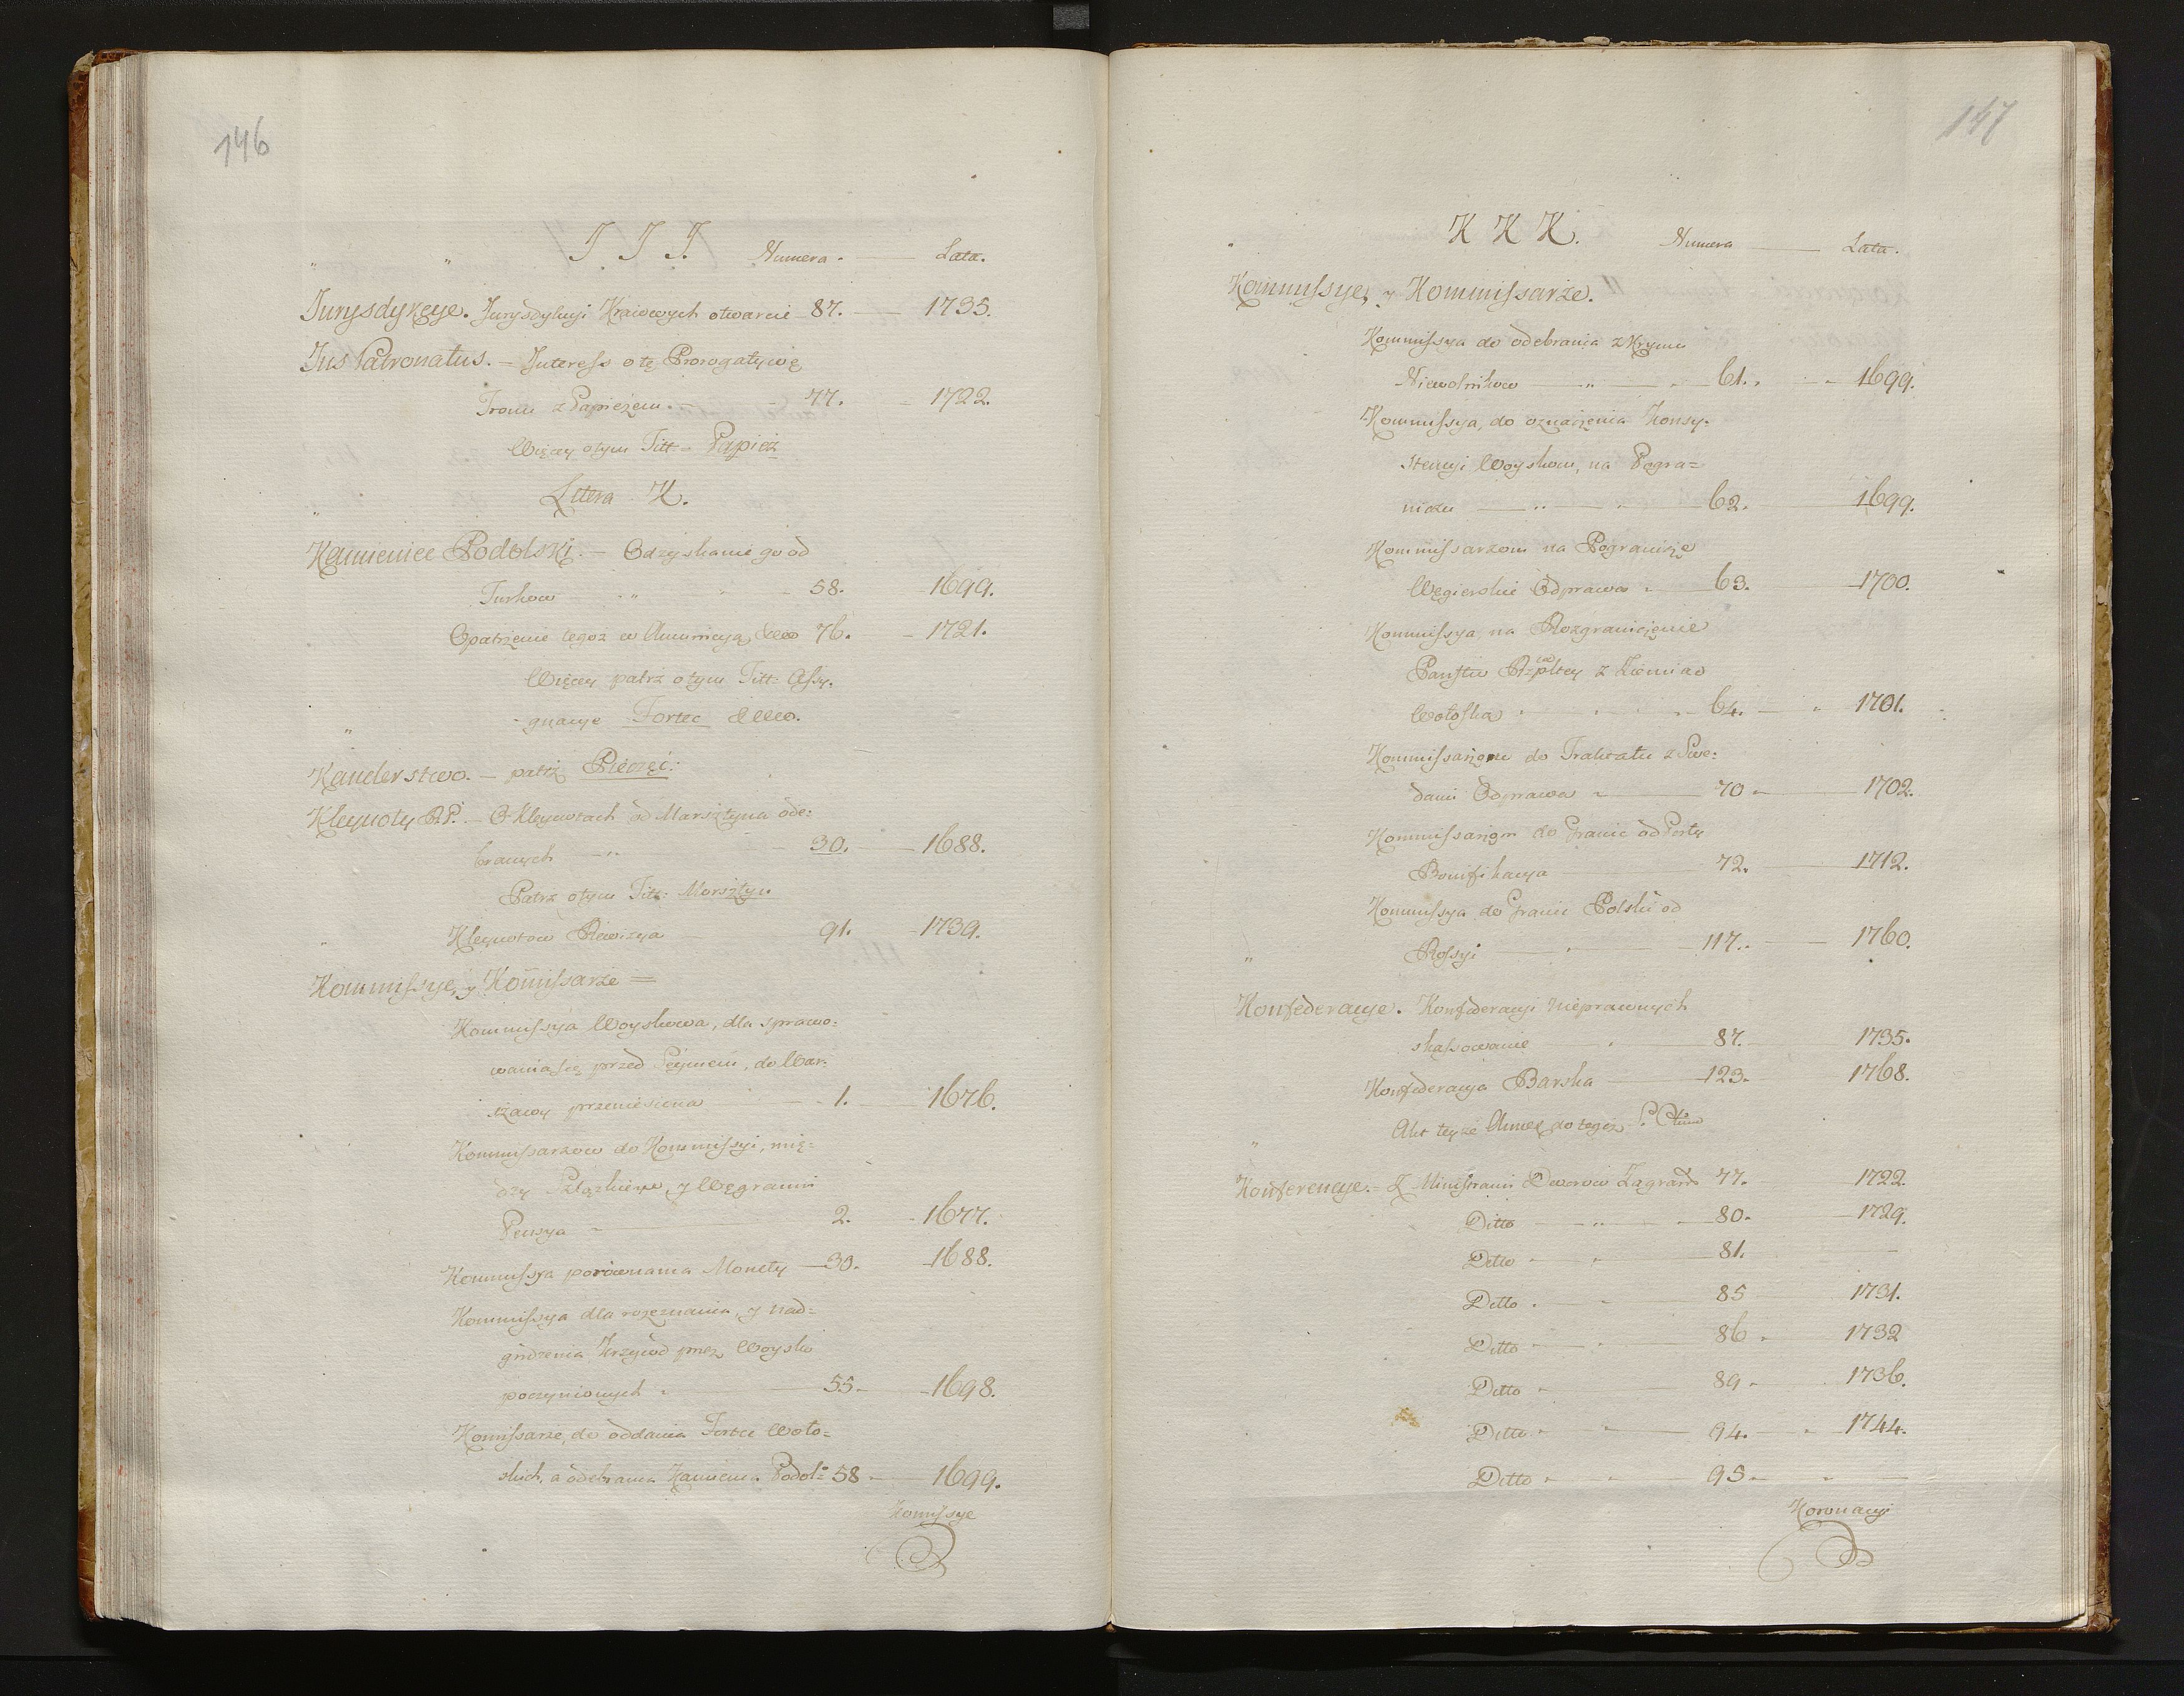 146
J J J. Numera. Lata.
Jurysdykcye. Jurysdykcyi Kraiowych otwarcie 87. 1735.
Jus Patronatus. — Interess o tę Prorogatywę
Tronu z Papieżem. 77. 1722.
Więcey o tym Titt= Papież
Litera K.
Kamieniec Podolski. — Odzyskanie go od
Turkow 58. 1699.
Opatrzenie tegoż w Ammunicyą 76. 1721.
Więcey patrz o tym Titt= Assy-
gnacye Fortec
Kanclerstwo. — patrz Pieczęć:
Kleynoty RP. — O Kleynotach od Morsztyna ode:
branych 30. 1688.
Patrz o tym Titt: Morsztyn
Kleynotow Rewizya 91. 1739.
Kommissye, y Kom̃issarze =
Kommissya Woyskowa, dla sprawo:
wania się przed Seymem, do War:
szawy przeniesiona 1. 1676.
Kommissarzow do Kommissyi, mię=
dzy Szląskiem, y Węgrami
Pensya 2. 1677.
Kommissya porównania Monety — 30. 1688.
Kommissya dla rozeznania, y nad=
grodzenia Krzywd przez Woysko
poczynionych 55. 1698.
Komissarze, do oddania Fortec Woło=
skich, a odebrania Kamieńca Podol: 58 1699.
Komissye
147
K K K. Numera Lata.
Kommissye, y Kommissarze.
Kommissya do odebrania z Krymu
Niewolnikow 61. 1699.
Kommissya, do oznaczenia Konsy-
stencyi Woyskom, na Pogra=
niczu 62. 1699.
Kommissarzom na Pogranicze
Węgierskie Odprawa 63. 1700.
Kommissya na Rozgraniczenie
Panstw Rzpltey z Ziemiao
Wołoska 64. 1701.
Kommissarzom do Traktatu z Szwe:
dami Odprawa 70 1702.
Kommissarzom do Granic od Porty
Bonifikacya 72. 1712.
Kommissya do Granic Polski od
Rossyi 117. 1760.
Konfederacye. Konfederacyi nieprawnych
skassowanie 87. 1735.
Konfederacya Barska 123. 1768.
Akt teyże Annex do tegoż
Konferencye. — Z Ministrami Dworow Zagran: 77. 1722.
Ditto 80. 1729.
Ditto 81. —
Ditto 85 1731.
Ditto 86 1732
Ditto 89 1736.
Ditto 94. 1744.
Ditto 95 —
Koronacyi